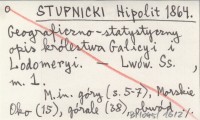 STUPNICKI Hipolit 1864.
Geograficzno-statystyczny
opis królestwa Galicyi i
Lodomeryi. — Lwów. Ss.
m. 1.
M.in. góry (s. 5-7), Morskie
Oko (15), górale (28), obwód